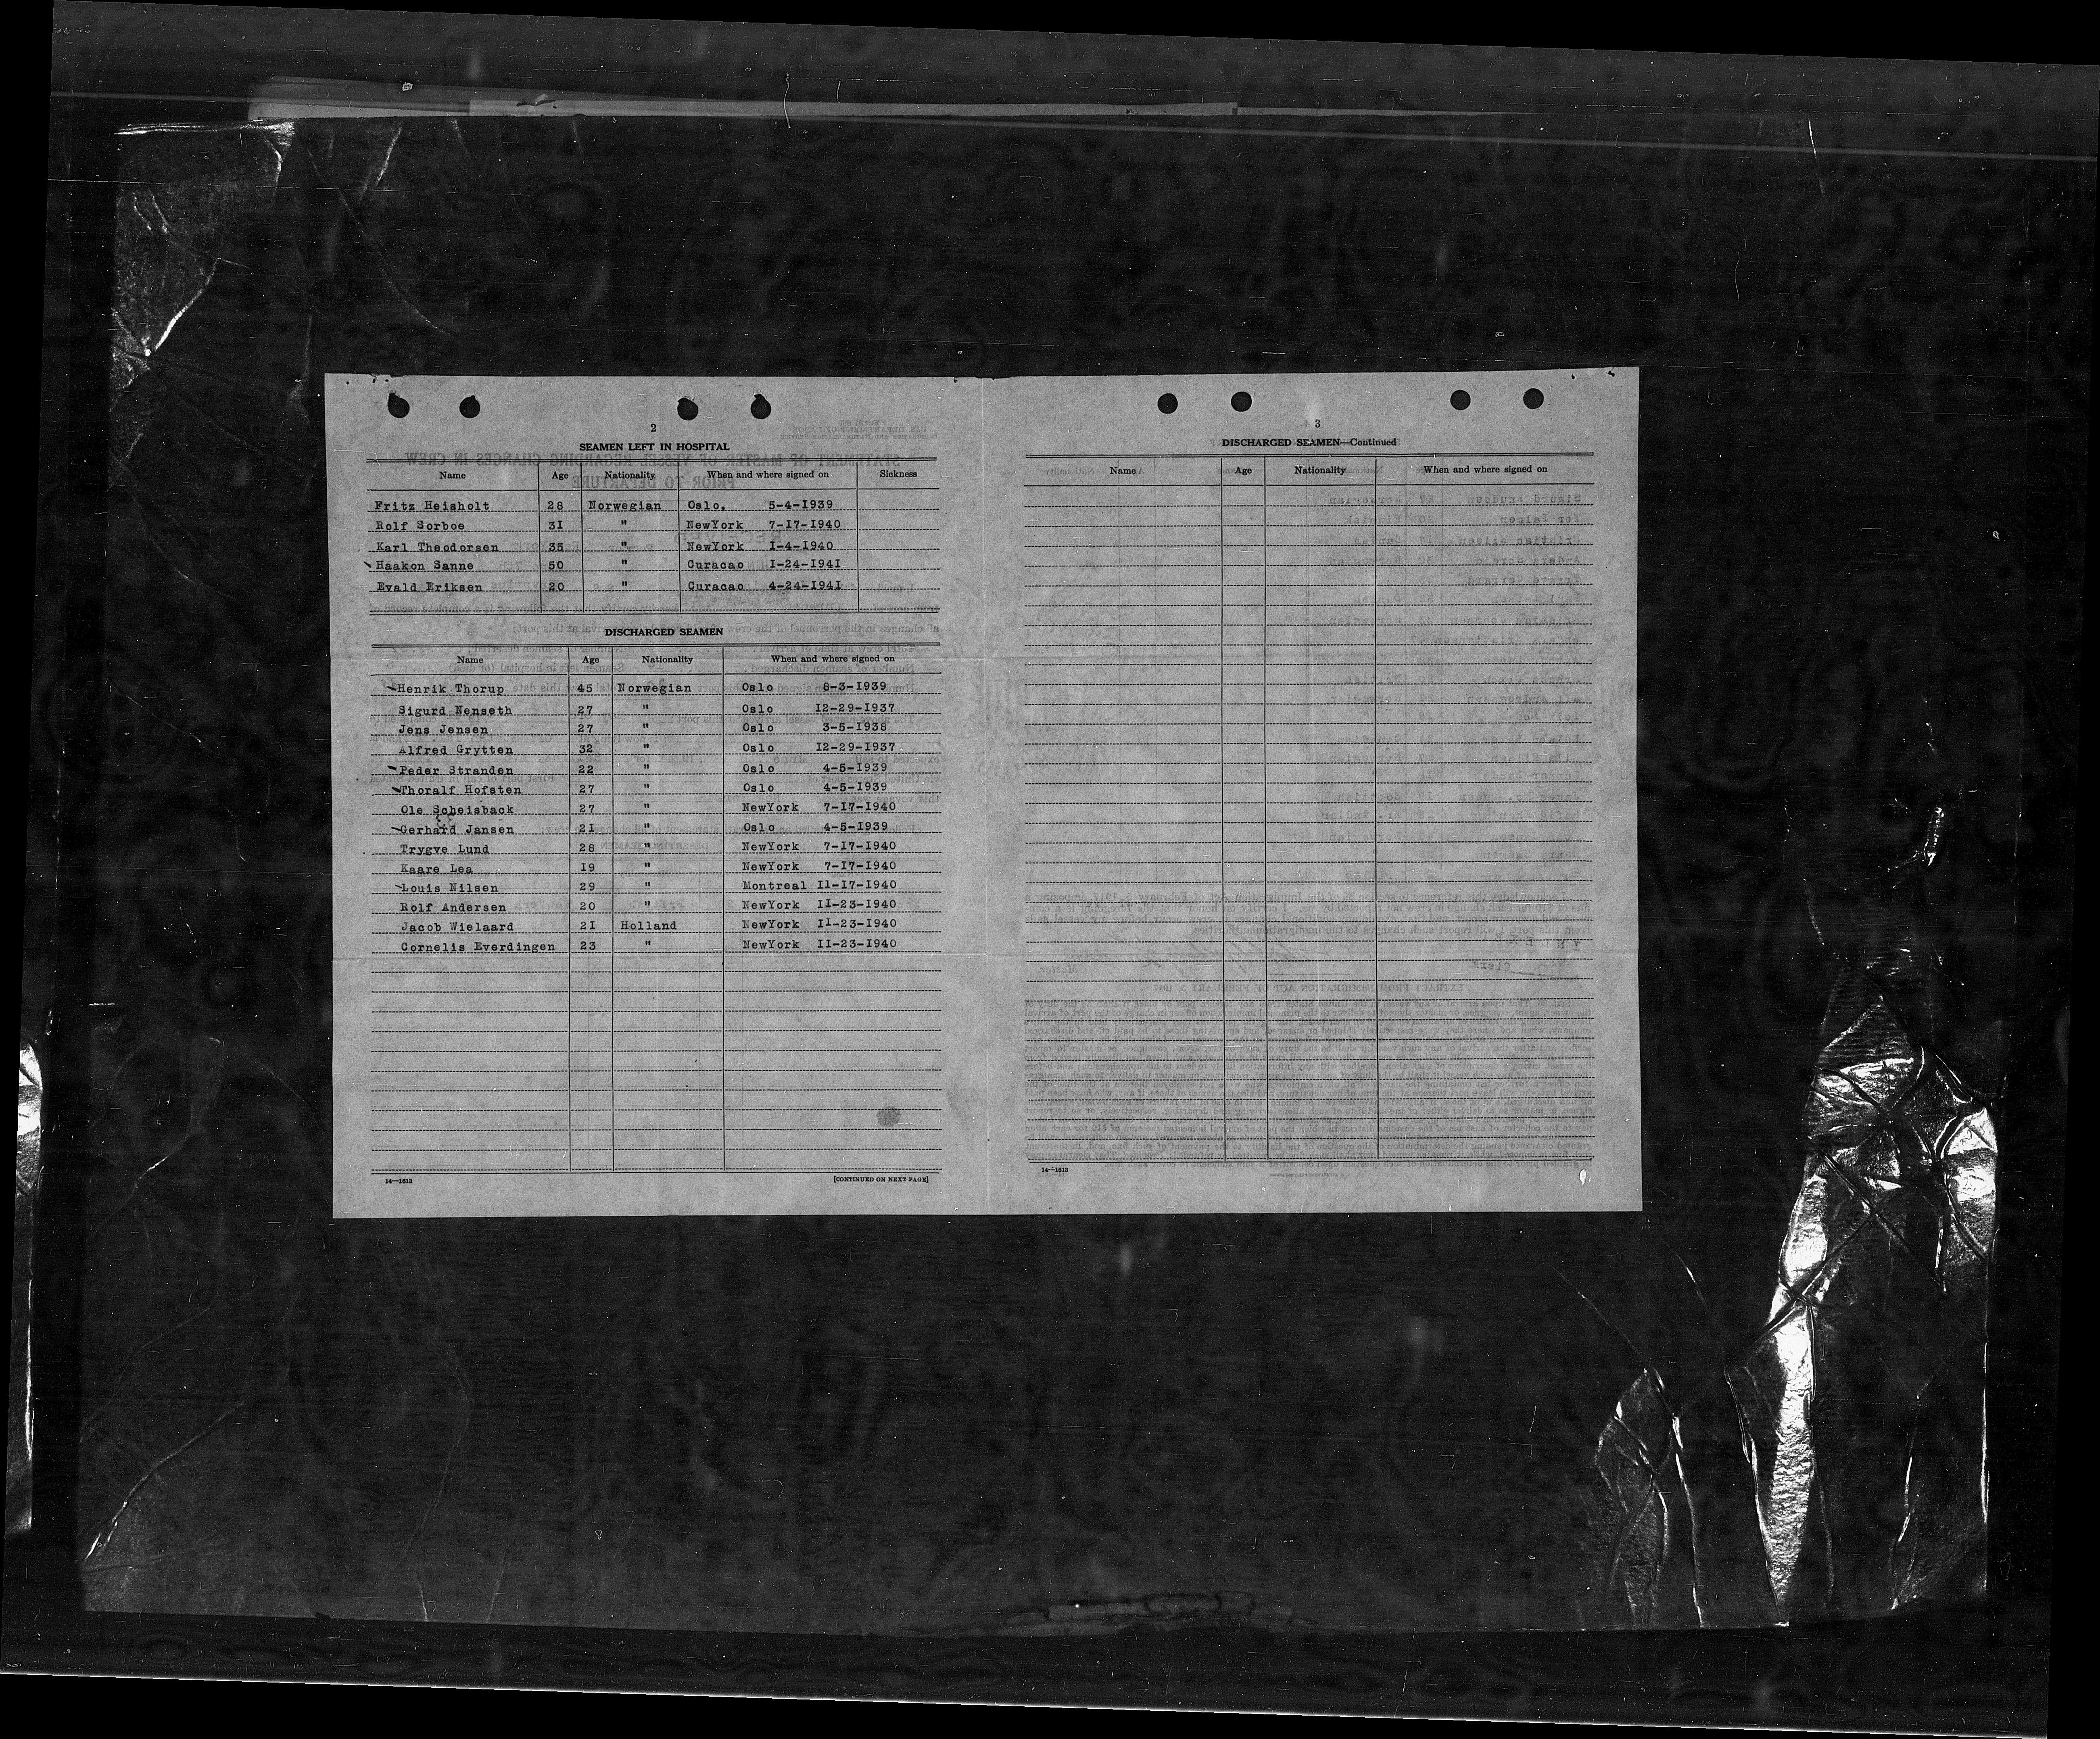 2
SEAMEN LEFT IN HOSPITAL
Name Age Nationality When and where signed on Sickness
Fritz Heisholt 28 Norwegian Oslo. 5-4-1939
Rolf Sorboe 31 " NewYork 7-17-1940
Karl Theodorsen 35 " NewYork 1-4-1940
Haakon Sanne 50 " Curacao 1-24-1941
Evald Eriksen 20 " Curacao 4-24-1941
DISCHARGED SEAMEN
Name Age Nationality When and where signed on
Henrik Thorup 45 Norwegian Oslo 8-3-1939
Sigurd Nenseth 27 " Oslo 12-29-1937
Jens Jensen 27 " Oslo 3-5-1938
Alfred Grytten 32 " Oslo 12-29-1937
Peder Stranden 22 " Oslo 4-5-1939
Thoralf Hofsten 27 " Oslo 4-5-1939
Ole Scheisback 27 " NewYork 7-17-1940
Gerhard Jansen 21 " Oslo 4-5-1939
Trygve Lund 28 " NewYork 7-17-1940
Kaare Lea 19 " NewYork 7-17-1940
Louis Nilsen 29 " Montreal 11-17-1940
Rolf Andersen 20 " NewYork 11-23-1940
Jacob Wielaard 21 Holland NewYork 11-23-1940
Cornelis Everdingen 23 " NewYork 11-23-1940
14—1613 [CONTINUED ON NEXT PAGE]
3
DISCHARGED SEAMEN—Continued
Name Age Nationality When and where signed on
14—1613